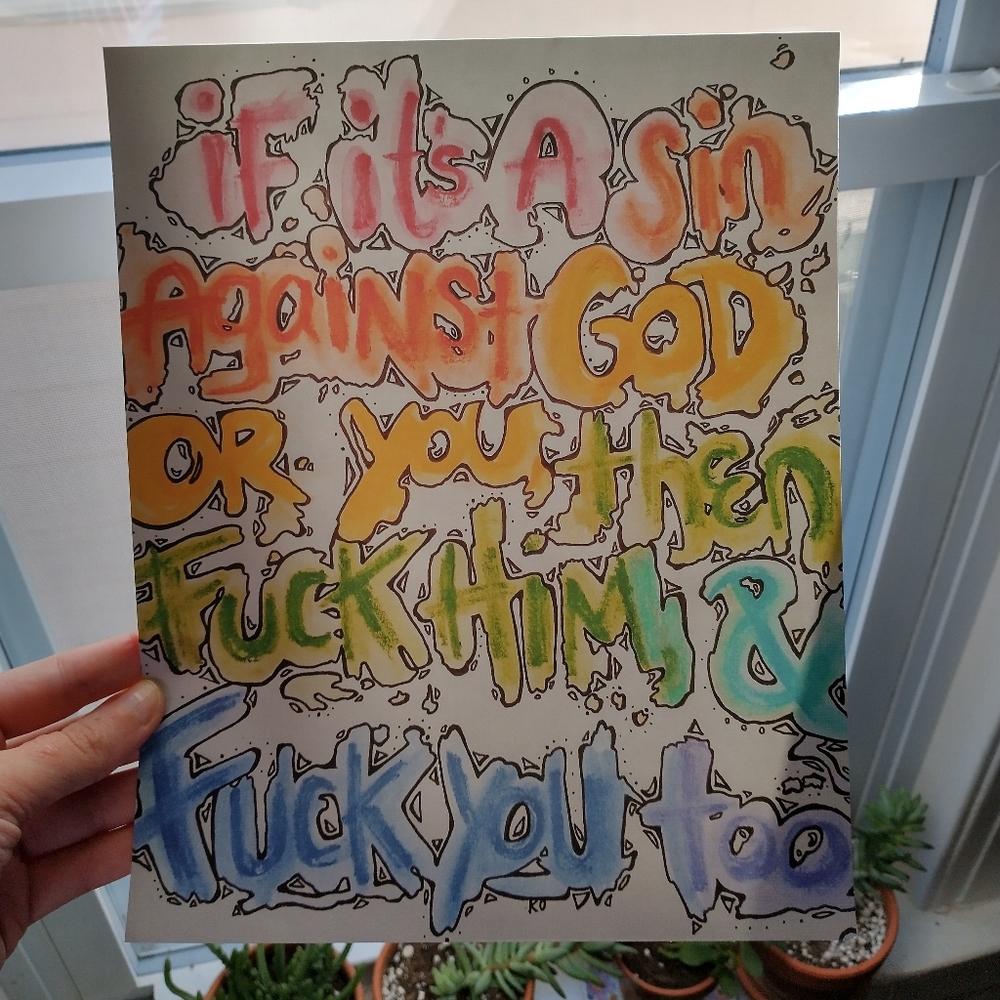 iF it's A Sin
AgaiNSt GOD
OR you then
FUCK HiM &
FUCK YOU too
KO